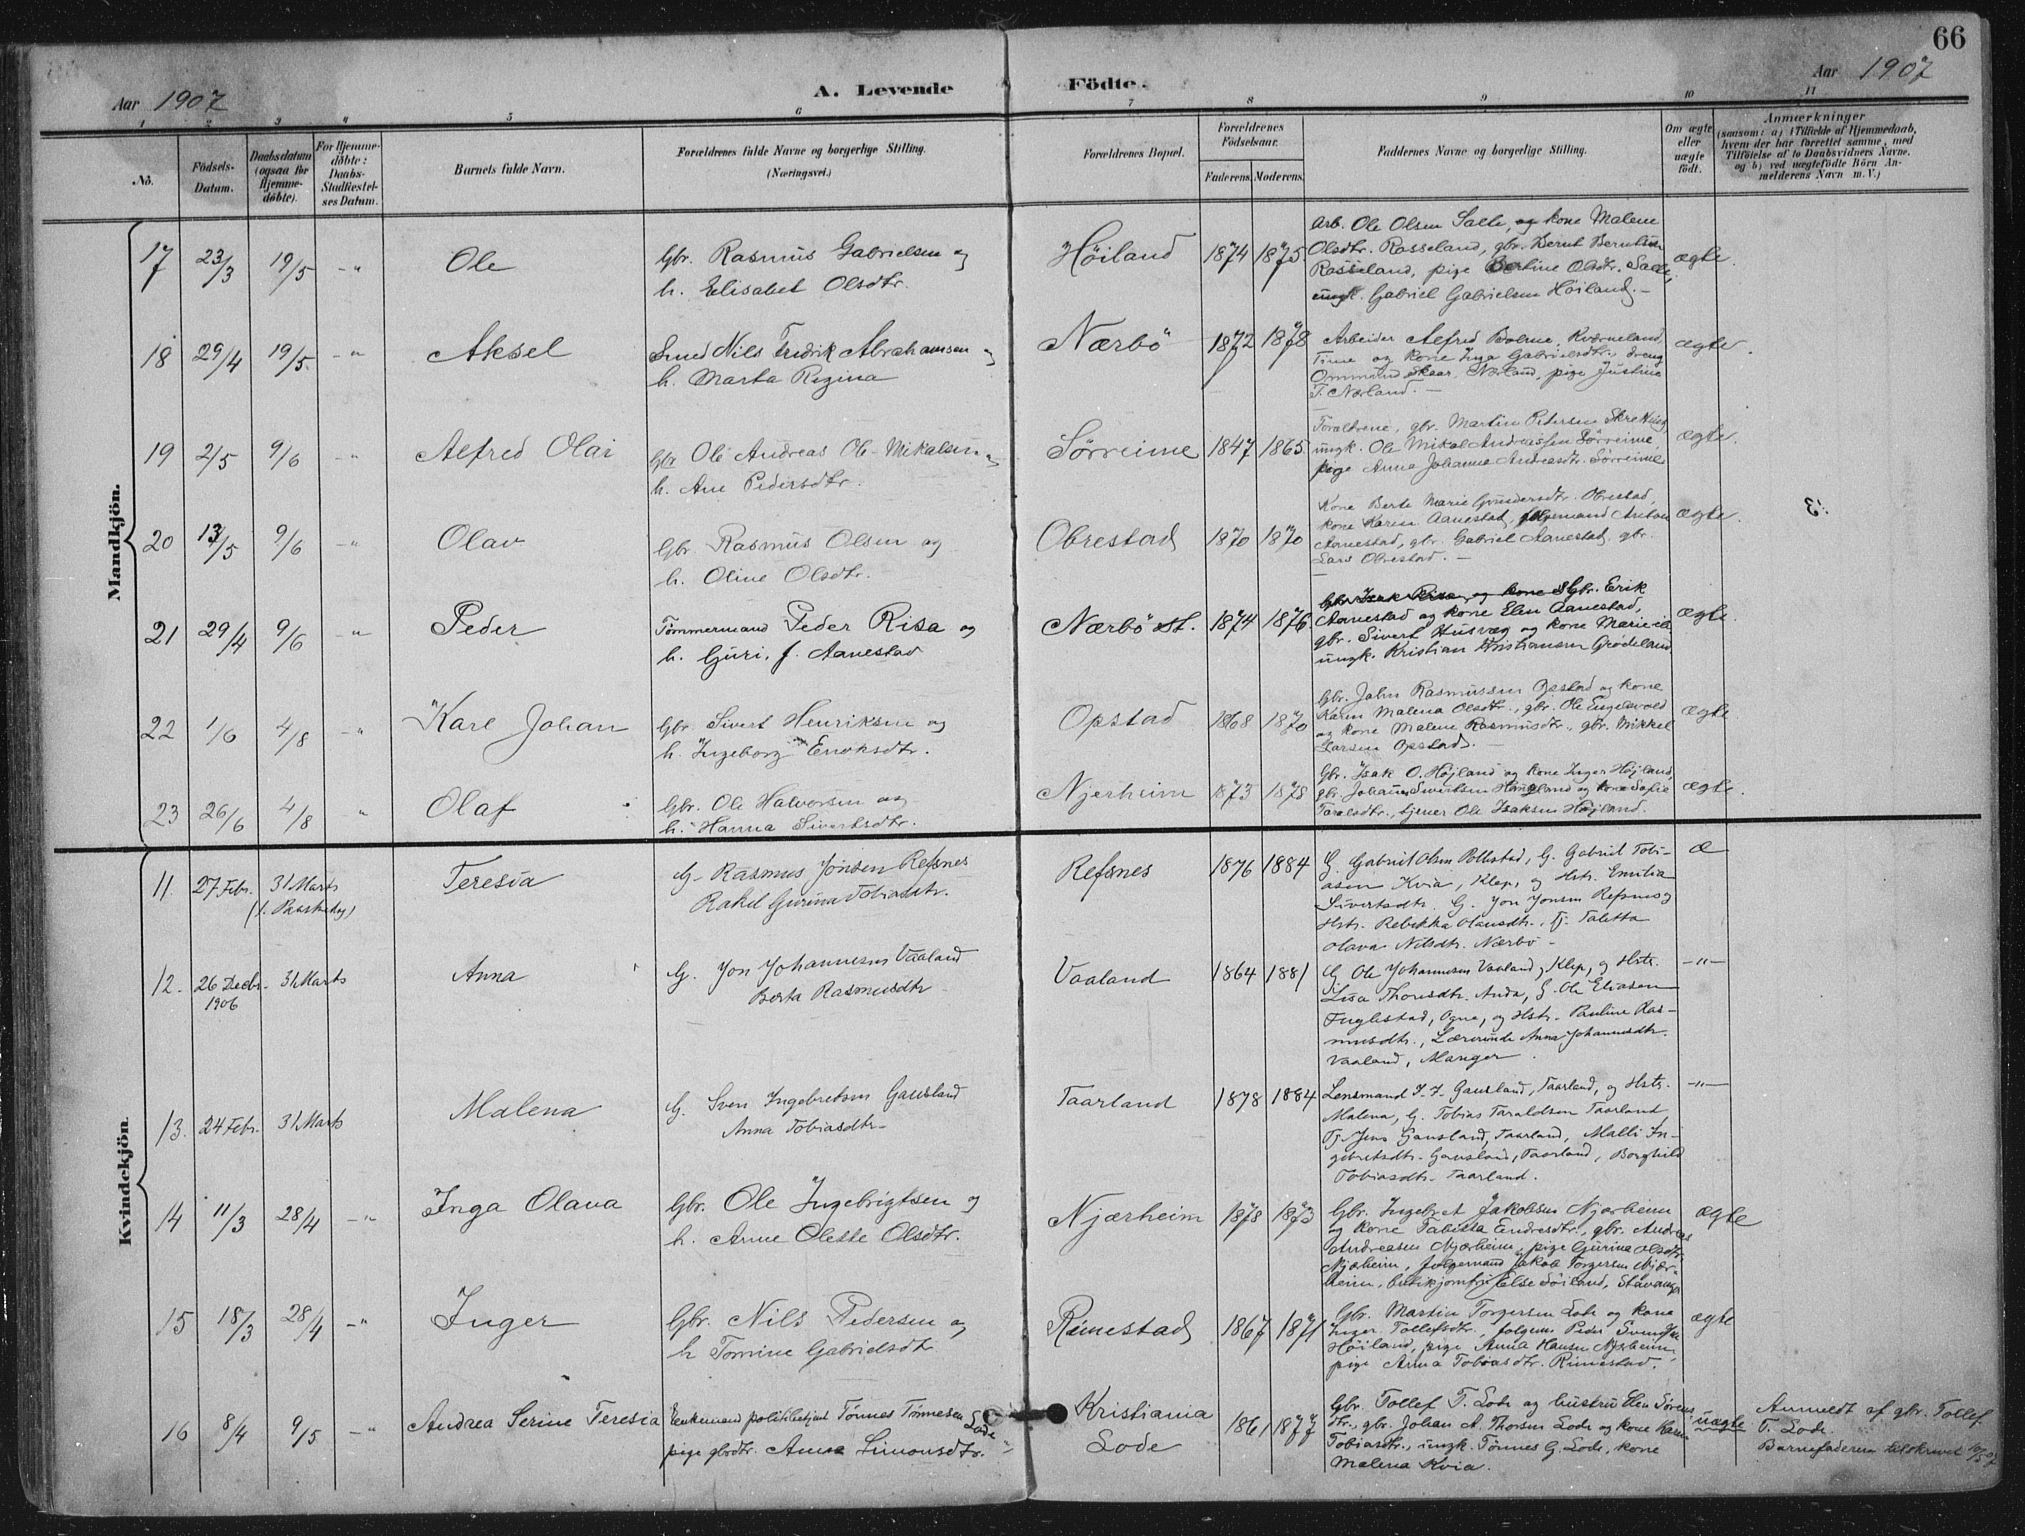 66
Aar 1907
A. Levende
Födte.
Aar 1907
1 2 3 4 5 6 7 8 9 10 11
No.
Födsels-
Datum.
Daabsdatum
(ogsaa for
Hjemme-
döbte).
For Hjemme-
döbte:
Daabs-
Stadfæstel-
ses Datum.
Barnets fulde Navn.
Forældrenes fulde Navne og borgerlige Stilling.
(Næringsvei.)
Forældrenes Bopæl.
Forældrenes
Födselsaar.
Faderens. Moderens.
Faddernes Navne og borgerlige Stilling.
Om ægte
eller
uægte
födt.
Anmærkninger
(saasom: a) i Tilfælde af Hjemmedaab,
hvem der har forrettet samme, med
Tilföielse af to Daabsvidners Navne.
og b) ved uægtefödte Börn An-
melderens Navn m. V.)
Mandkjön.
17 23/3 19/5 -"- Ole
Gbr. Rasmus Gabrielsen og
h. Elisabet Olsdtr.
Höiland 1874 1875
Arb. Ole Olsen Salte, og kone Malene
Olsdtr. Rasseland, gbr. Bernt Berntsen
Rasseland, pige Bertine Olsdtr. Salte,
ungk. Gabriel Gabrielsen Höiland. -
ægte.
18 29/4 19/5 -"- Aksel
Smed Nils Fredrik Abrahamsen og
h. Marta Regina
Nærbö 1872 1878
Arbeider Alfred Bolme, Kverneland,
Time og kone Inga Gabrielsdtr., dreng
Ommund Skaar, Nærland, pige Justine
T. Nærland. -
ægte.
19 2/5 9/6 -"- Alfred Olai
Gbr Ole Andreas Ol. Mikalsen og
h. Ane Pedersdtr.
Sörreime 1847 1865
Forældrene, gbr. Martin Petersen
ungk. Ole Mikal Andreassen Sörreime,
pige Anna Johanna Andreasdtr. Sörreime
ægte.
20 13/5 9/6 -"- Olav
Gbr Rasmus Olsen og
h. Oline Olsdtr.
Obrestad 1870 1870
Kone Berte Marie Gundersdtr. Obrestad,
kone Karen Aanestad, fölgemand Anton
Aanestad, gbr. Gabriel Aanestad, gbr.
Lars Obrestad. -
ægte.
21 29/4 9/6 -"- Peder
Tömmermand Peder Risa og
h. Guri, f. Aanestad
Nærbö st. 1874 1876
Gbr Isak Risa og kone Gbr. Erik
Aanestad og kone Elen Aanestad,
gbr. Sivert Husvæg og kone Marie
ungk. Kristian Kristiansen Grödeland.
ægte.
22 1/6 4/8 -"- Karl Johan
Gbr Sivert Henriksen og
h. Ingeborg Eneoksdtr.
Opstad 1868 1870
Gbr. John Rasmussen Opstad og kone
Karen Malena Olsdtr., gbr. Ole Engelsvold
og kone Malene Rasmusdtr., gbr. Mikkel
Larsen Opstad. -
ægte.
23 26/6 4/8 " Olaf
Gbr. Ole Halvorsen og
h. Hanna Sivertsdtr.
Njerheim 1873 1878
Gbr. Isak O. Höjland og kone Inger Höjland,
gbr. Johan Sivertsen Haugland og kone Sofie
Taralsdtr., tjener Ole Isaksen Höjland.
ægte.
Kvindekjön.
11. 27 Febr. 31 Marts
(1. Paaskedag)
Teresia
G. Rasmus Jonsen Refsnes
Rakel Gurina Tobiasdtr.
Refsnes 1876 1884
G. Gabriel Olsen Pollestad, G. Gabriel Tobi-
asen Kvia, Klep, og Hstr. Emilia
Sivertsdtr. G. Jon Jonsen Refsnes og
Hstr. Rebekka Olausdtr., Tj. Taletta
Olava Nilsdtr. Nærbö -
Æ
12. 26 Decbr. 31 Marts
1906
Anna
G. Jon Johannesen Vaaland
Berta Rasmusdtr
Vaaland 1864 1881
G. Ole Johannesen Vaaland, Klep, og Hstr.
Lisa Thoresdtr. Anda, G. Ole Eliasen
Fuglestad, Ogna, og Hstr. Pauline Ras-
musdtr., Lærerinde Anna Johannesdtr.
Vaaland, Manger.
-"-
13. 24 Febr. 31 Marts Malena
G. Sven Ingebretsen Gausland
Anna Tobiasdtr-
Taarland 1878 1884
Lensmand I. I. Gausland, Taarland, og Hstr.
Malena, G. Tobias Taraldsen Taarland,
Tj. Jens Gausland, Taarland, Malli In-
gebretsdtr. Gausland, Taarland, Borghild
Tobiasdtr. Taarland.
-"-
14 11/3 28/4 -"- Inga Olava
Gbr. Ole Ingebrigtsen og
h. Anne Oleste Olsdtr.
Njærheim 1878 1873
Gbr. Ingebret Jakobsen Njærheim
og kone Tabitta Endresdtr., gbr. Andreas
Andreasen Njærheim, pige Gurine Olsdtr.
Njærheim, fölgemand Jakob Torgersen Njær-
heim, butikjomfru Else Söiland, Stavanger
ægte
15 18/3 28/4 -"- Inger
Gbr. Nils Pedersen og
h Tomine Gabrielsdtr
Rimestad 1867 1871
Gbr. Martin Torgersen Lode og kone
Inger Tollefsdtr., fölgem. Peder Svendsen
Höiland, pige Anna Hansen Njerheim,
pige Anna Tobiasdtr. Rimestad.
ægte
16 8/4 9/5 -"- Andrea Serine Teresia
Enkemand politibetjent Tönnes Tönnesen Lode
pige gbrdtr. Anna Simonsdtr.
Kristiania
Lode
1861 1877
Gbr. Tollef T. Lode og hustru Elen Sörens-
dtr., gbr. Johan A. Thorsen Lode og kone Karen
Tobiasdtr., ungk. Tönnes G. Lode, kone
Malena Kvia.
uægte
Anmeldt af gbr. Tollef
T. Lode.
Barnefaderen tilskrevet 10/5 07